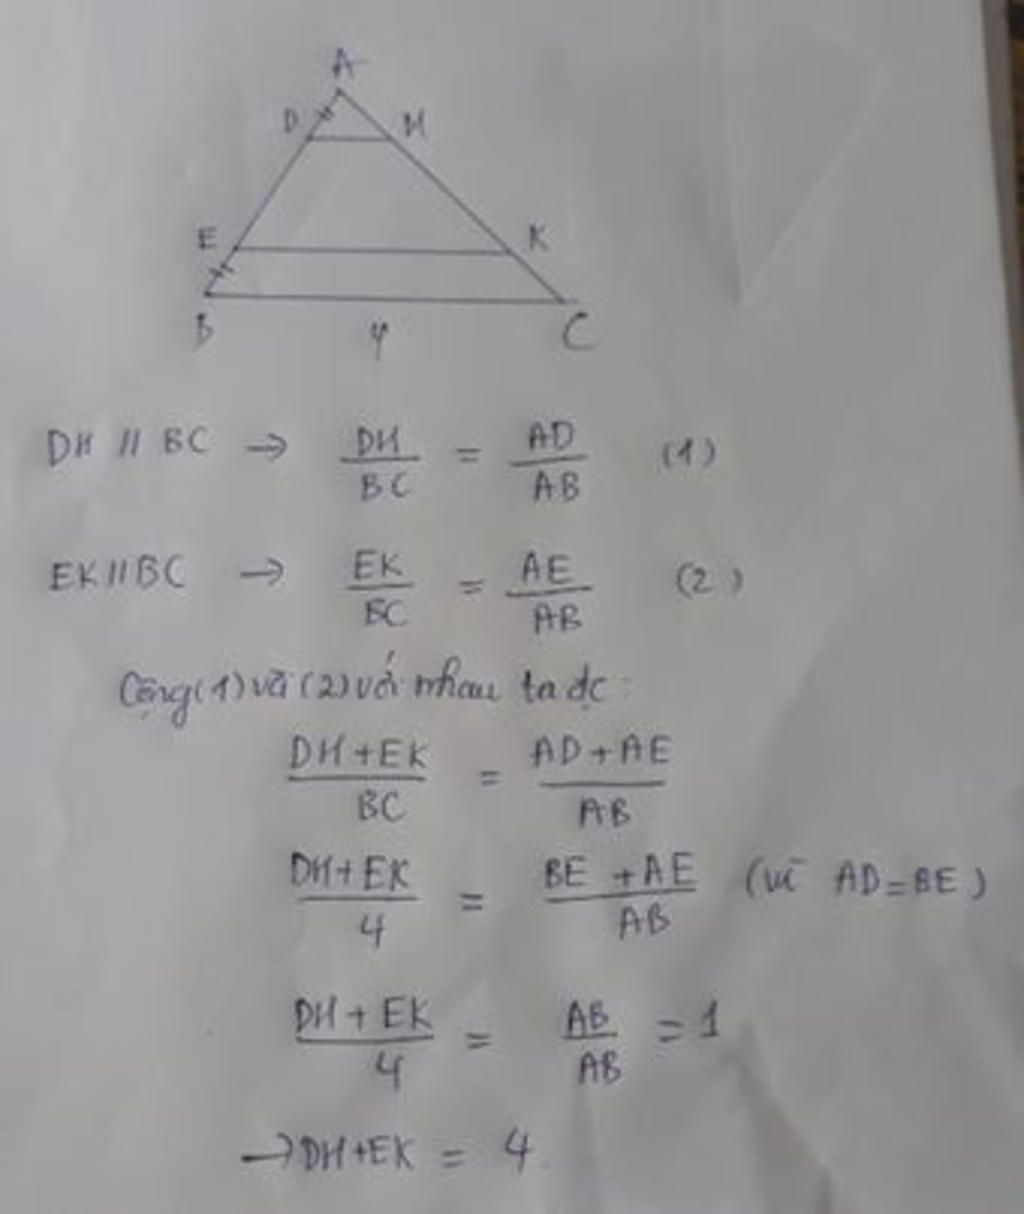 A
D H
E K
B 4 C
DH // BC → DH/BC = AD/AB (1)
EK // BC → EK/BC = AE/AB (2)
Cộng (1) và (2) với nhau ta đc :
DH + EK/BC = AD + AE/AB
DH + EK/4 = BE + AE/AB (vì AD = BE)
DH + EK/4 = AB/AB = 1
→ DH + EK = 4.